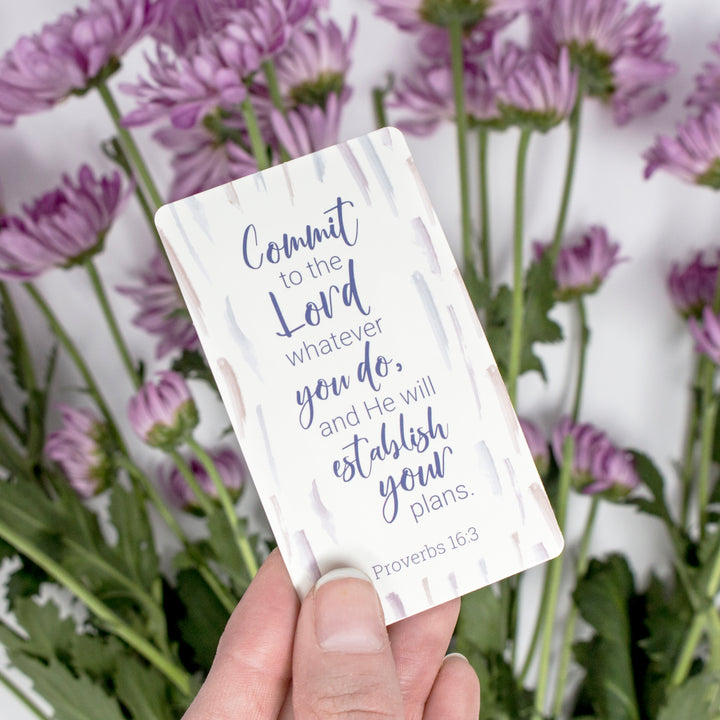 Commit
to the
Lord
whatever
you do,
and He will
establish
your
plans.
Proverbs 16:3